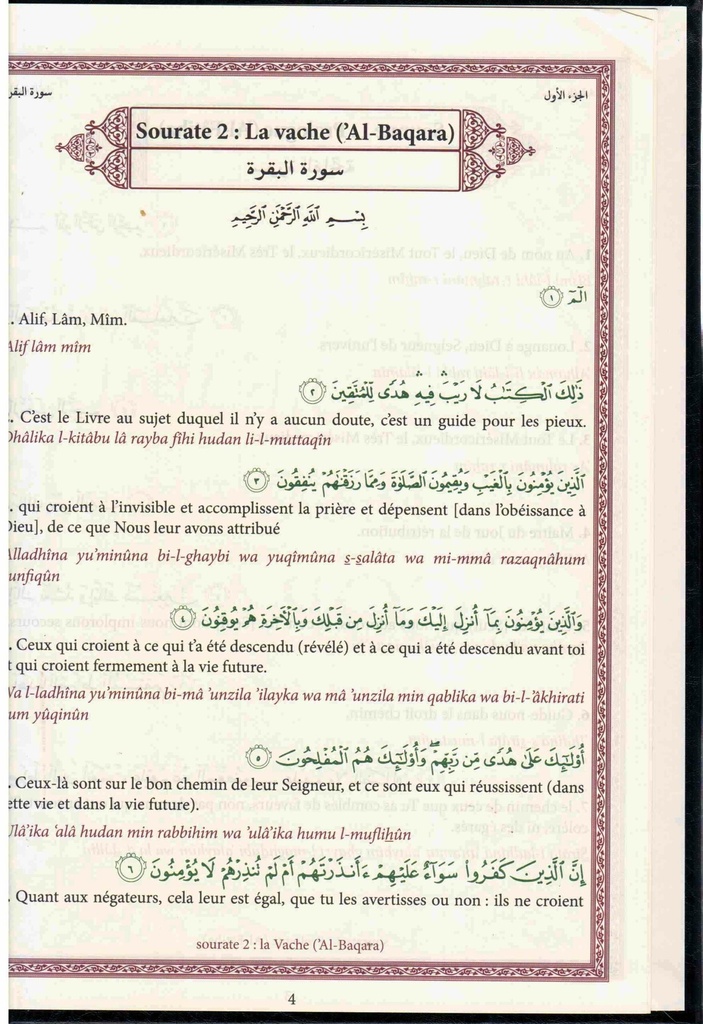 سورة البقر
الجزء الأول
Sourate 2 : La vache ('Al-Baqara)
سورة البقرة
بِسْمِ ٱللَّهِ ٱلرَّحْمَٰنِ ٱلرَّحِيمِ
الٓمٓ ١
. Alif, Lâm, Mîm.
Alif lâm mîm
ذَٰلِكَ ٱلْكِتَٰبُ لَا رَيْبَ ۛ فِيهِ ۛ هُدًى لِّلْمُتَّقِينَ ٢
. C'est le Livre au sujet duquel il n'y a aucun doute, c'est un guide pour les pieux.
Dhâlika l-kitâbu lâ rayba fîhi hudan li-l-muttaqîn
ٱلَّذِينَ يُؤْمِنُونَ بِٱلْغَيْبِ وَيُقِيمُونَ ٱلصَّلَوٰةَ وَمِمَّا رَزَقْنَٰهُمْ يُنفِقُونَ ٣
. qui croient à l'invisible et accomplissent la prière et dépensent [dans l'obéissance à
Dieu], de ce que Nous leur avons attribué
Alladhîna yu'minûna bi-l-ghaybi wa yuqîmûna s-salâta wa mi-mmâ razaqnâhum
unfiqûn
وَٱلَّذِينَ يُؤْمِنُونَ بِمَآ أُنزِلَ إِلَيْكَ وَمَآ أُنزِلَ مِن قَبْلِكَ وَبِٱلْءَاخِرَةِ هُمْ يُوقِنُونَ ٤
. Ceux qui croient à ce qui t'a été descendu (révélé) et à ce qui a été descendu avant toi
t qui croient fermement à la vie future.
Wa l-ladhîna yu'minûna bi-mâ 'unzila 'ilayka wa mâ 'unzila min qablika wa bi-l-'âkhirati
um yûqinûn
أُو۟لَٰٓئِكَ عَلَىٰ هُدًى مِّن رَّبِّهِمْ ۖ وَأُو۟لَٰٓئِكَ هُمُ ٱلْمُفْلِحُونَ ٥
. Ceux-là sont sur le bon chemin de leur Seigneur, et ce sont eux qui réussissent (dans
ette vie et dans la vie future).
Ulâ'ika 'alâ hudan min rabbihim wa 'ulâ'ika humu l-muflihûn
إِنَّ ٱلَّذِينَ كَفَرُوا۟ سَوَآءٌ عَلَيْهِمْ ءَأَنذَرْتَهُمْ أَمْ لَمْ تُنذِرْهُمْ لَا يُؤْمِنُونَ ٦
. Quant aux négateurs, cela leur est égal, que tu les avertisses ou non : ils ne croient
sourate 2 : la Vache ('Al-Baqara)
4